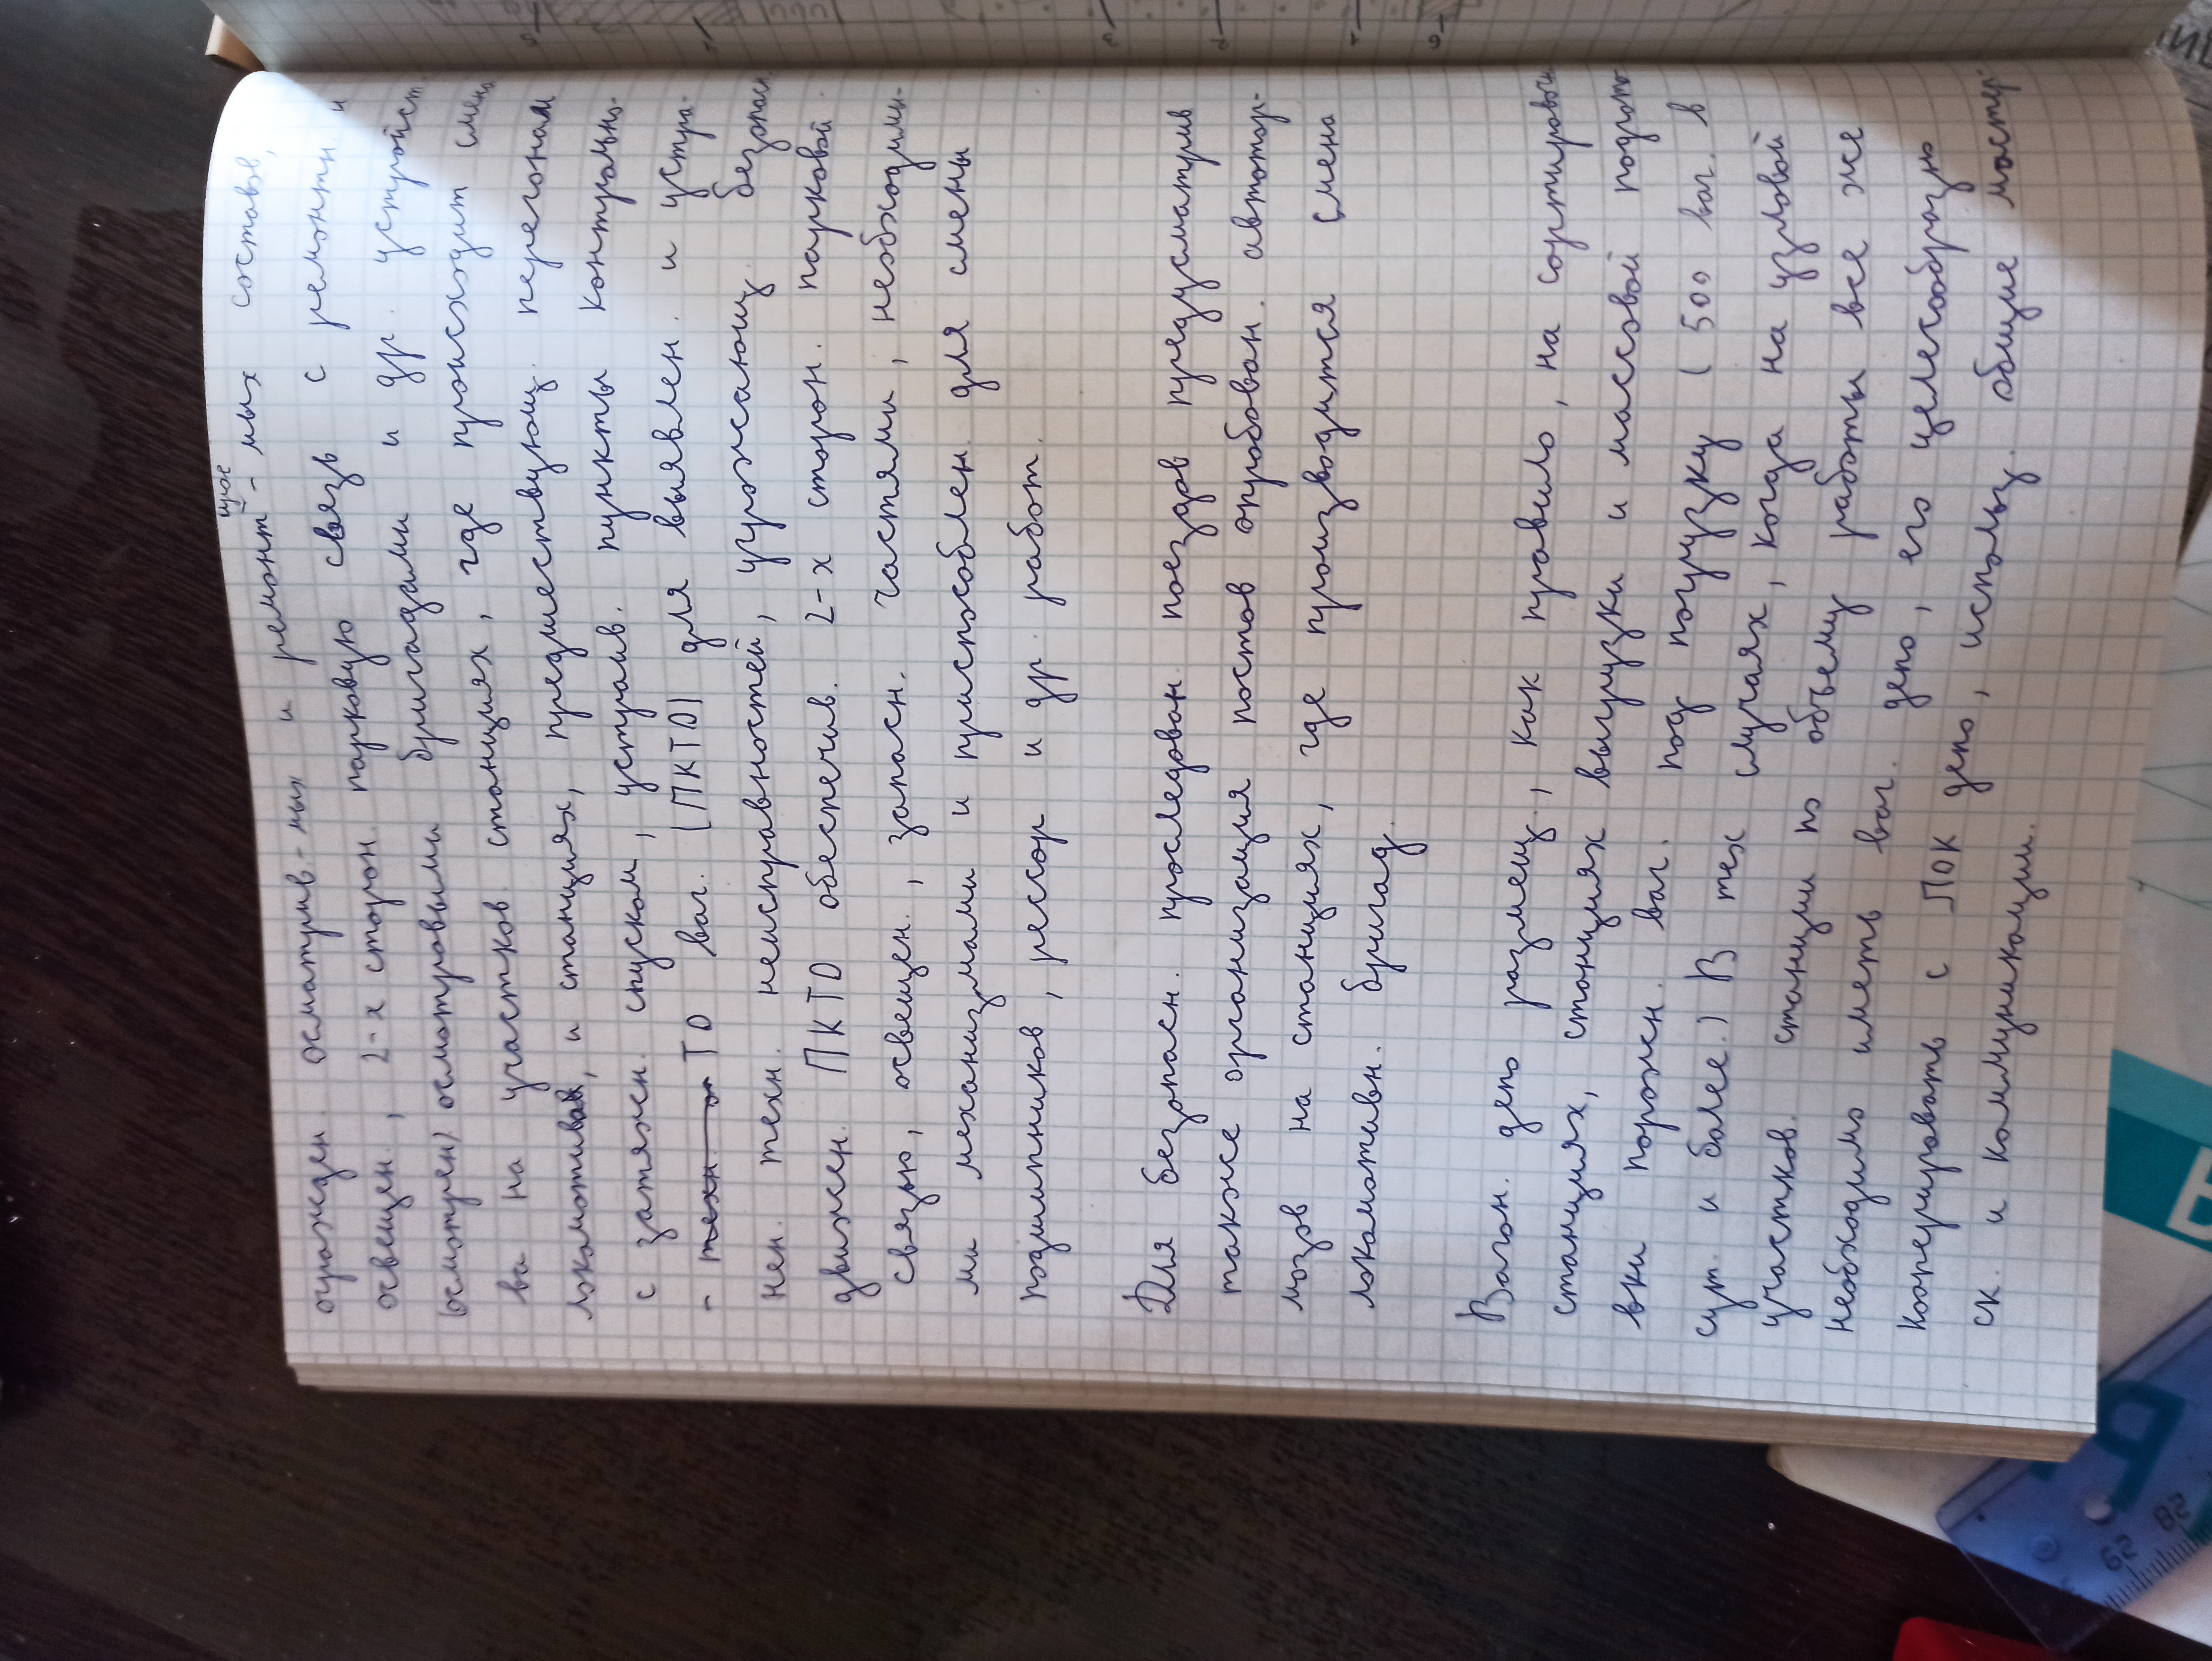 огражден. осматрив.-мых и ремонт-мых составов,
освещен., 2-х сторон. парковую связь с ремонтн. и
(осмотрен) осмотровыми бригадами и др. устройст.
ва на участков. станциях, где происходит смена
локомотивов, и станциях, предшествующ. перегонам
с затяжн. спуском, устраив. пункты контрольно-
- техн. ТО ваг. (ПКТО) для выявлен. и устра-
нен. техн. неисправностей, угрожающ. безопасн.
движен. ПКТО обеспечив. 2-х сторон. парковой
связью, освещен., запасн. частями, необходимы-
ми механизмами и приспособлен. для смены
подшипников, рессор и др. работ.
Для безопасн. проследован. поездов предусматрив
также организация постов опробован. автотор-
мозов на станциях, где производится смена
локомотивн. бригад.
Вагон. депо размещ., как правило, на сортировочн
станциях, станциях выгрузки и массовой подгото
вки порожн. ваг. под погрузку (500 ваг. в
сут. и более.) В тех случаях, когда на узловой
участков. станции по объему работы все же
необходимо иметь ваг. депо, его целесообразно
кооперировать с ЛОК депо, использ. общие мастер
ск. и коммуникации.
62 82